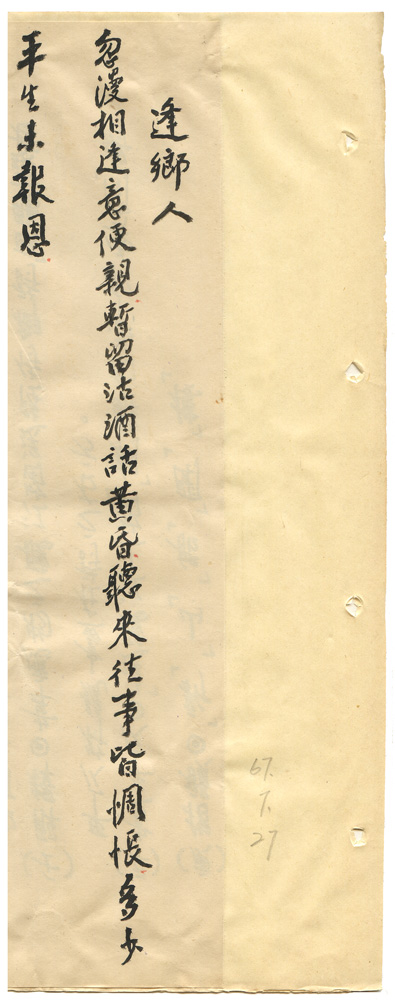 逢鄉人
忽漫相逢意便親暫留沽酒話黃昏聽來往事皆惆悵多少
平生未報恩
67.
7.
27